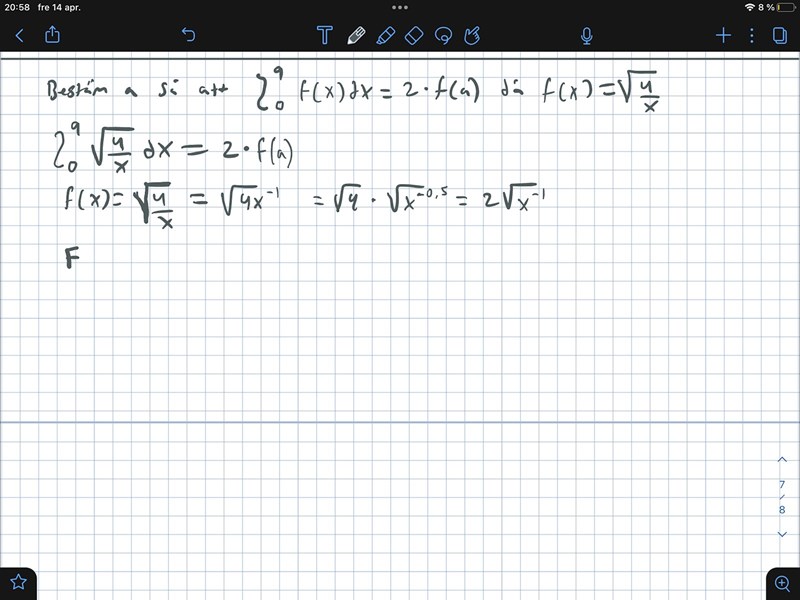 20:58 fre 14 apr. 8 %
Bestäm a så att ∫₀⁹ f(x)dx = 2·f(a) då f(x) = √(4/x)
∫₀⁹ √(4/x) dx = 2·f(a)
f(x) = √(4/x) = √(4x⁻¹) = √4 · √(x⁻⁰,⁵) = 2√(x⁻¹)
F
7
/
8